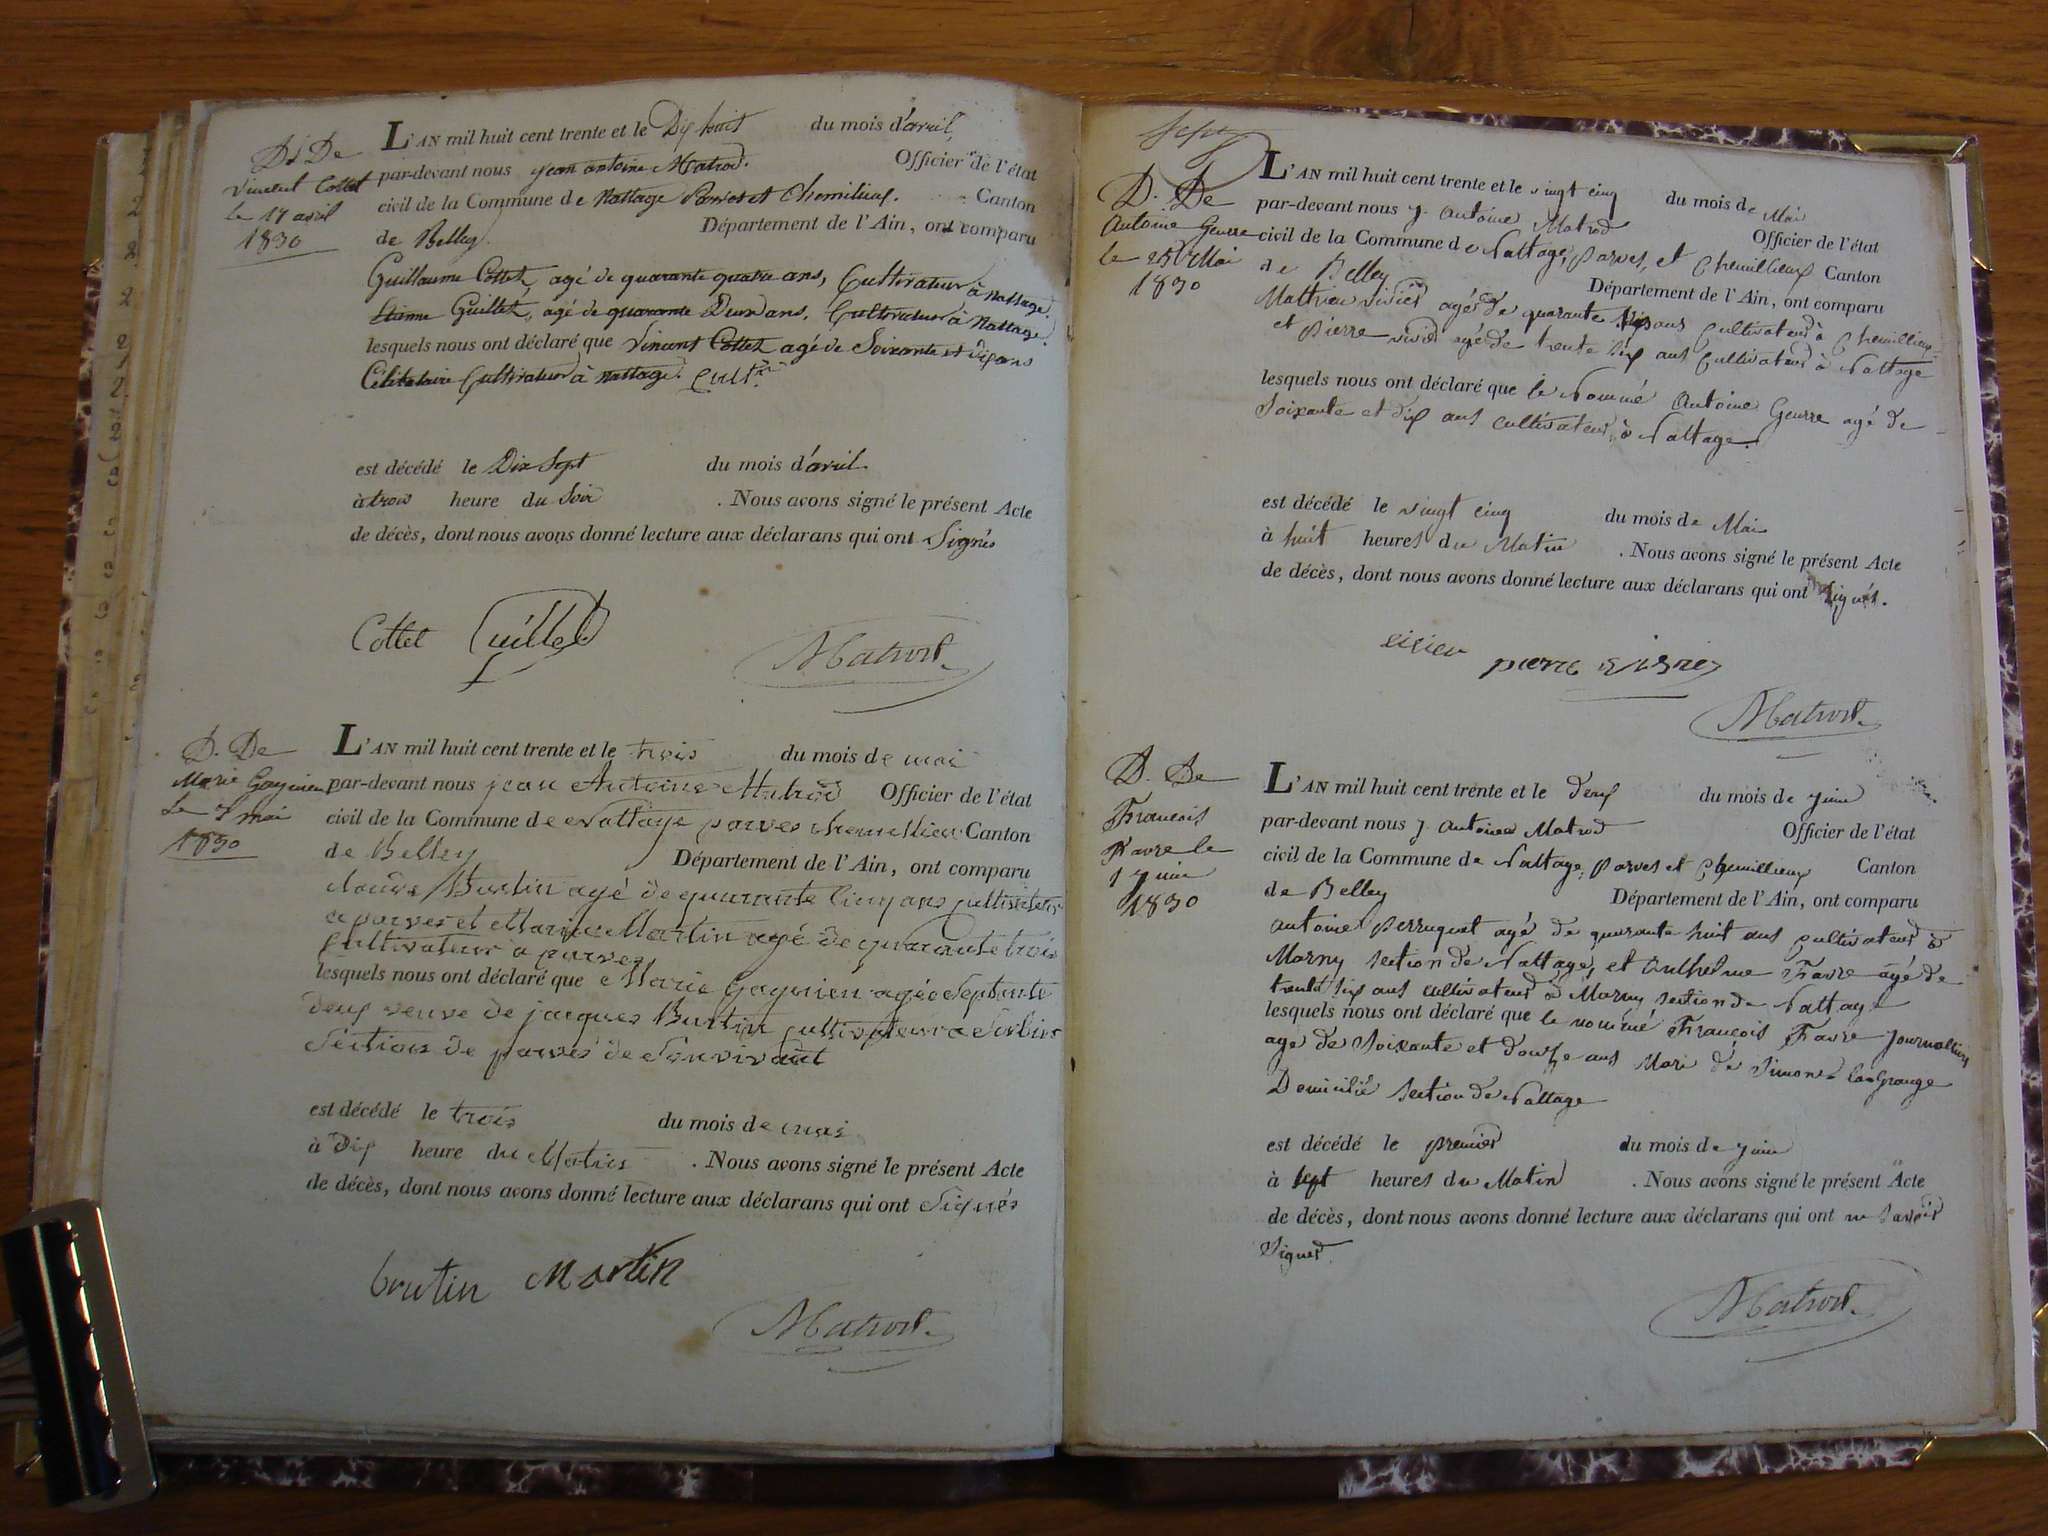 D. De
Vincent Cottet
le 17 avril
1830
L'AN mil huit cent trente et le Dix huit du mois d'avril,
par-devant nous jean antoine Matrod. Officier de l'état
civil de la Commune de Nattage Parves et Chemilieux. Canton
de Belley. Département de l'Ain, ont comparu
Guillaume Cottet, agé de quarante quatre ans, Cultivateur à Nattage.
Etienne Guillet, agé de quarante Deux ans, Cultivateur à Nattage.
lesquels nous ont déclaré que Vincent Cottet agé de Soixante et dix ans
Célibataire Cultivateur à Nattage.
est décédé le Dix Sept du mois d'avril.
à trois heure du Soir . Nous avons signé le présent Acte
de décès, dont nous avons donné lecture aux déclarans qui ont Signés
Cottet Guillet
Matrod.
D. De
Marie Goynien
Le 3 mai
1830
L'AN mil huit cent trente et le trois du mois de mai
par-devant nous jean Antoine Matrod Officier de l'état
civil de la Commune de Nattage parves chemillieu Canton
de Belley Département de l'Ain, ont comparu
claude Burtin agé de quarante cinq ans cultivateur
a parves et Martin agé de quarante trois
cultivateur a parves
lesquels nous ont déclaré que Marie Goynien agée Septante
deux veuve de jacques Burtin cultivateur a Sorbier
Section de parves de Son vivant
est décédé le trois du mois de mai
à Dix heure du Matin . Nous avons signé le présent Acte
de décès, dont nous avons donné lecture aux déclarans qui ont Signés
brutin Martin
Matrod.
D. De
Antoine Geurre
le 25 Mai
1830
L'AN mil huit cent trente et le vingt cinq du mois de Mai
par-devant nous J. Antoine Matrod Officier de l'état
civil de la Commune de Nattage, parves, et Chemillieux Canton
de Belley Département de l'Ain, ont comparu
Mathieu vivier agé de quarante ans Cultivateur à Chemillieux
et pierre vivier agé de trente six ans Cultivateur à Nattage
lesquels nous ont déclaré que le Nommé Antoine Geurre agé de
Soixante et dix ans cultivateur à Nattage.
est décédé le vingt cinq du mois de Mai
à huit heures du Matin . Nous avons signé le présent Acte
de décès, dont nous avons donné lecture aux déclarans qui ont Signés.
vivier pierre vivier
Matrod.
D. De
Francois
Favre le
1 juin
1830
L'AN mil huit cent trente et le deux du mois de juin
par-devant nous J. Antoine Matrod Officier de l'état
civil de la Commune de Nattage, parves et Chemillieux Canton
de Belley Département de l'Ain, ont comparu
Antoine Perruquet agé de quarante huit ans cultivateur à
Morny section de Nattage, et Anthelme Favre agé de
trente six ans cultivateur à Morny section de Nattage
lesquels nous ont déclaré que le nommé François Favre journallier
age de Soixante et douze ans Mari de Simone LaGrange
Domicilié section de Nattage
est décédé le premier du mois de juin
à sept heures du Matin . Nous avons signé le présent Acte
de décès, dont nous avons donné lecture aux déclarans qui ont ne savoir
Signer
Matrod.